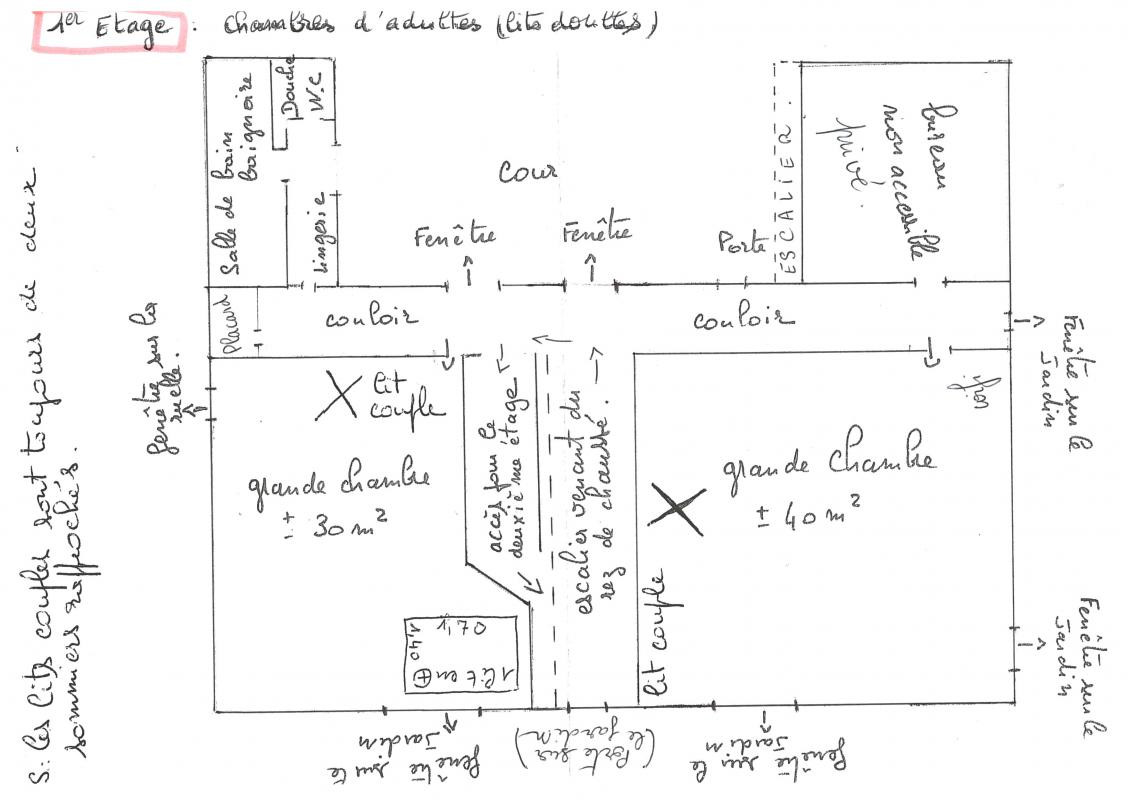 1er Etage : Chambres d'adultes (lits doubles)
Salle de bain
baignoire
Douche
W.C
lingerie
Cour
Fenêtre
Fenêtre
Porte
ESCALIER.
bureau
non accessible
privé.
Placard
couloir
couloir
Fenêtre sur la
ruelle.
Fenêtre sur le
Jardin
lit
couple
accès pour le
deuxième étage
escalier venant du
rez de chaussé.
grande chambre
± 30 m²
grande chambre
± 40 m²
lit couple
1,70
1,40
1 lit en ⊕
Fenêtre sur le
Jardin
fenêtre sur le
Jardin
(Porte sur
le jardin)
fenêtre sur le
Jardin
S: les lits couples sont toujours de deux
sommiers rapprochés.